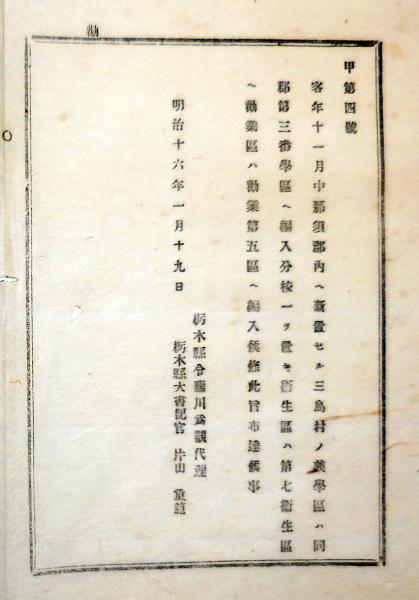 甲第四號
客年十一月中那須郡內ヘ新置セル三島村ノ義學區ハ同
郡第三番學區ヘ編入分校一ヲ置キ衛生區ハ第七衛生區
ヘ勸業區ハ勸業第五區ヘ編入候條此旨布達候事
明治十六年一月十九日
栃木縣令藤川爲親代理
栃木縣大書記官 片山 重範
勸